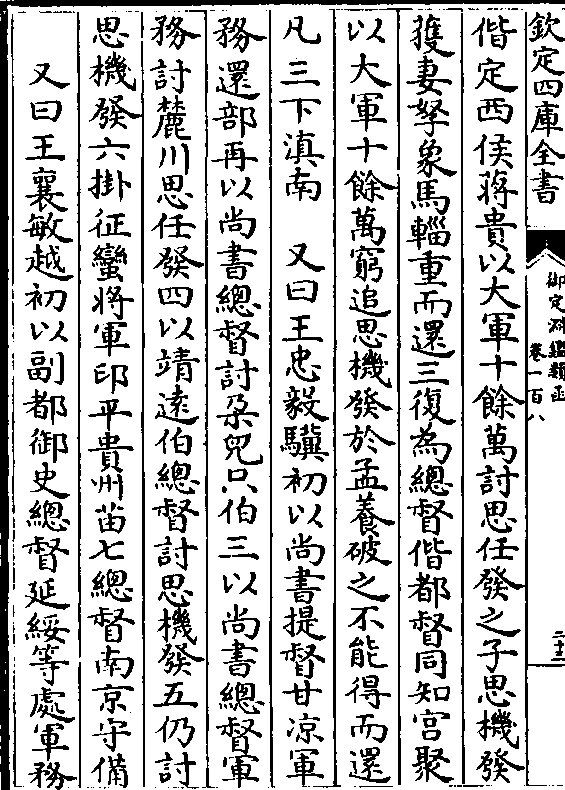 欽定四庫全書
御定淵鑑類函
卷一百八
二十二
偕定西侯蔣貴以大軍十餘萬討思任發之子思機發
獲妻孥象馬輜重而還三復為總督偕都督同知宮聚
以大軍十餘萬窮追思機發於孟養破之不能得而還
凡三下滇南　又曰王忠毅驥初以尚書提督甘涼軍
務還部再以尚書總督討朶兒只伯三以尚書總督軍
務討麓川思任發四以靖遠伯總督討思機發五仍討
思機發六掛征蠻將軍印平貴州苗七總督南京守備
又曰王襄敏越初以副都御史總督延綏等處軍務